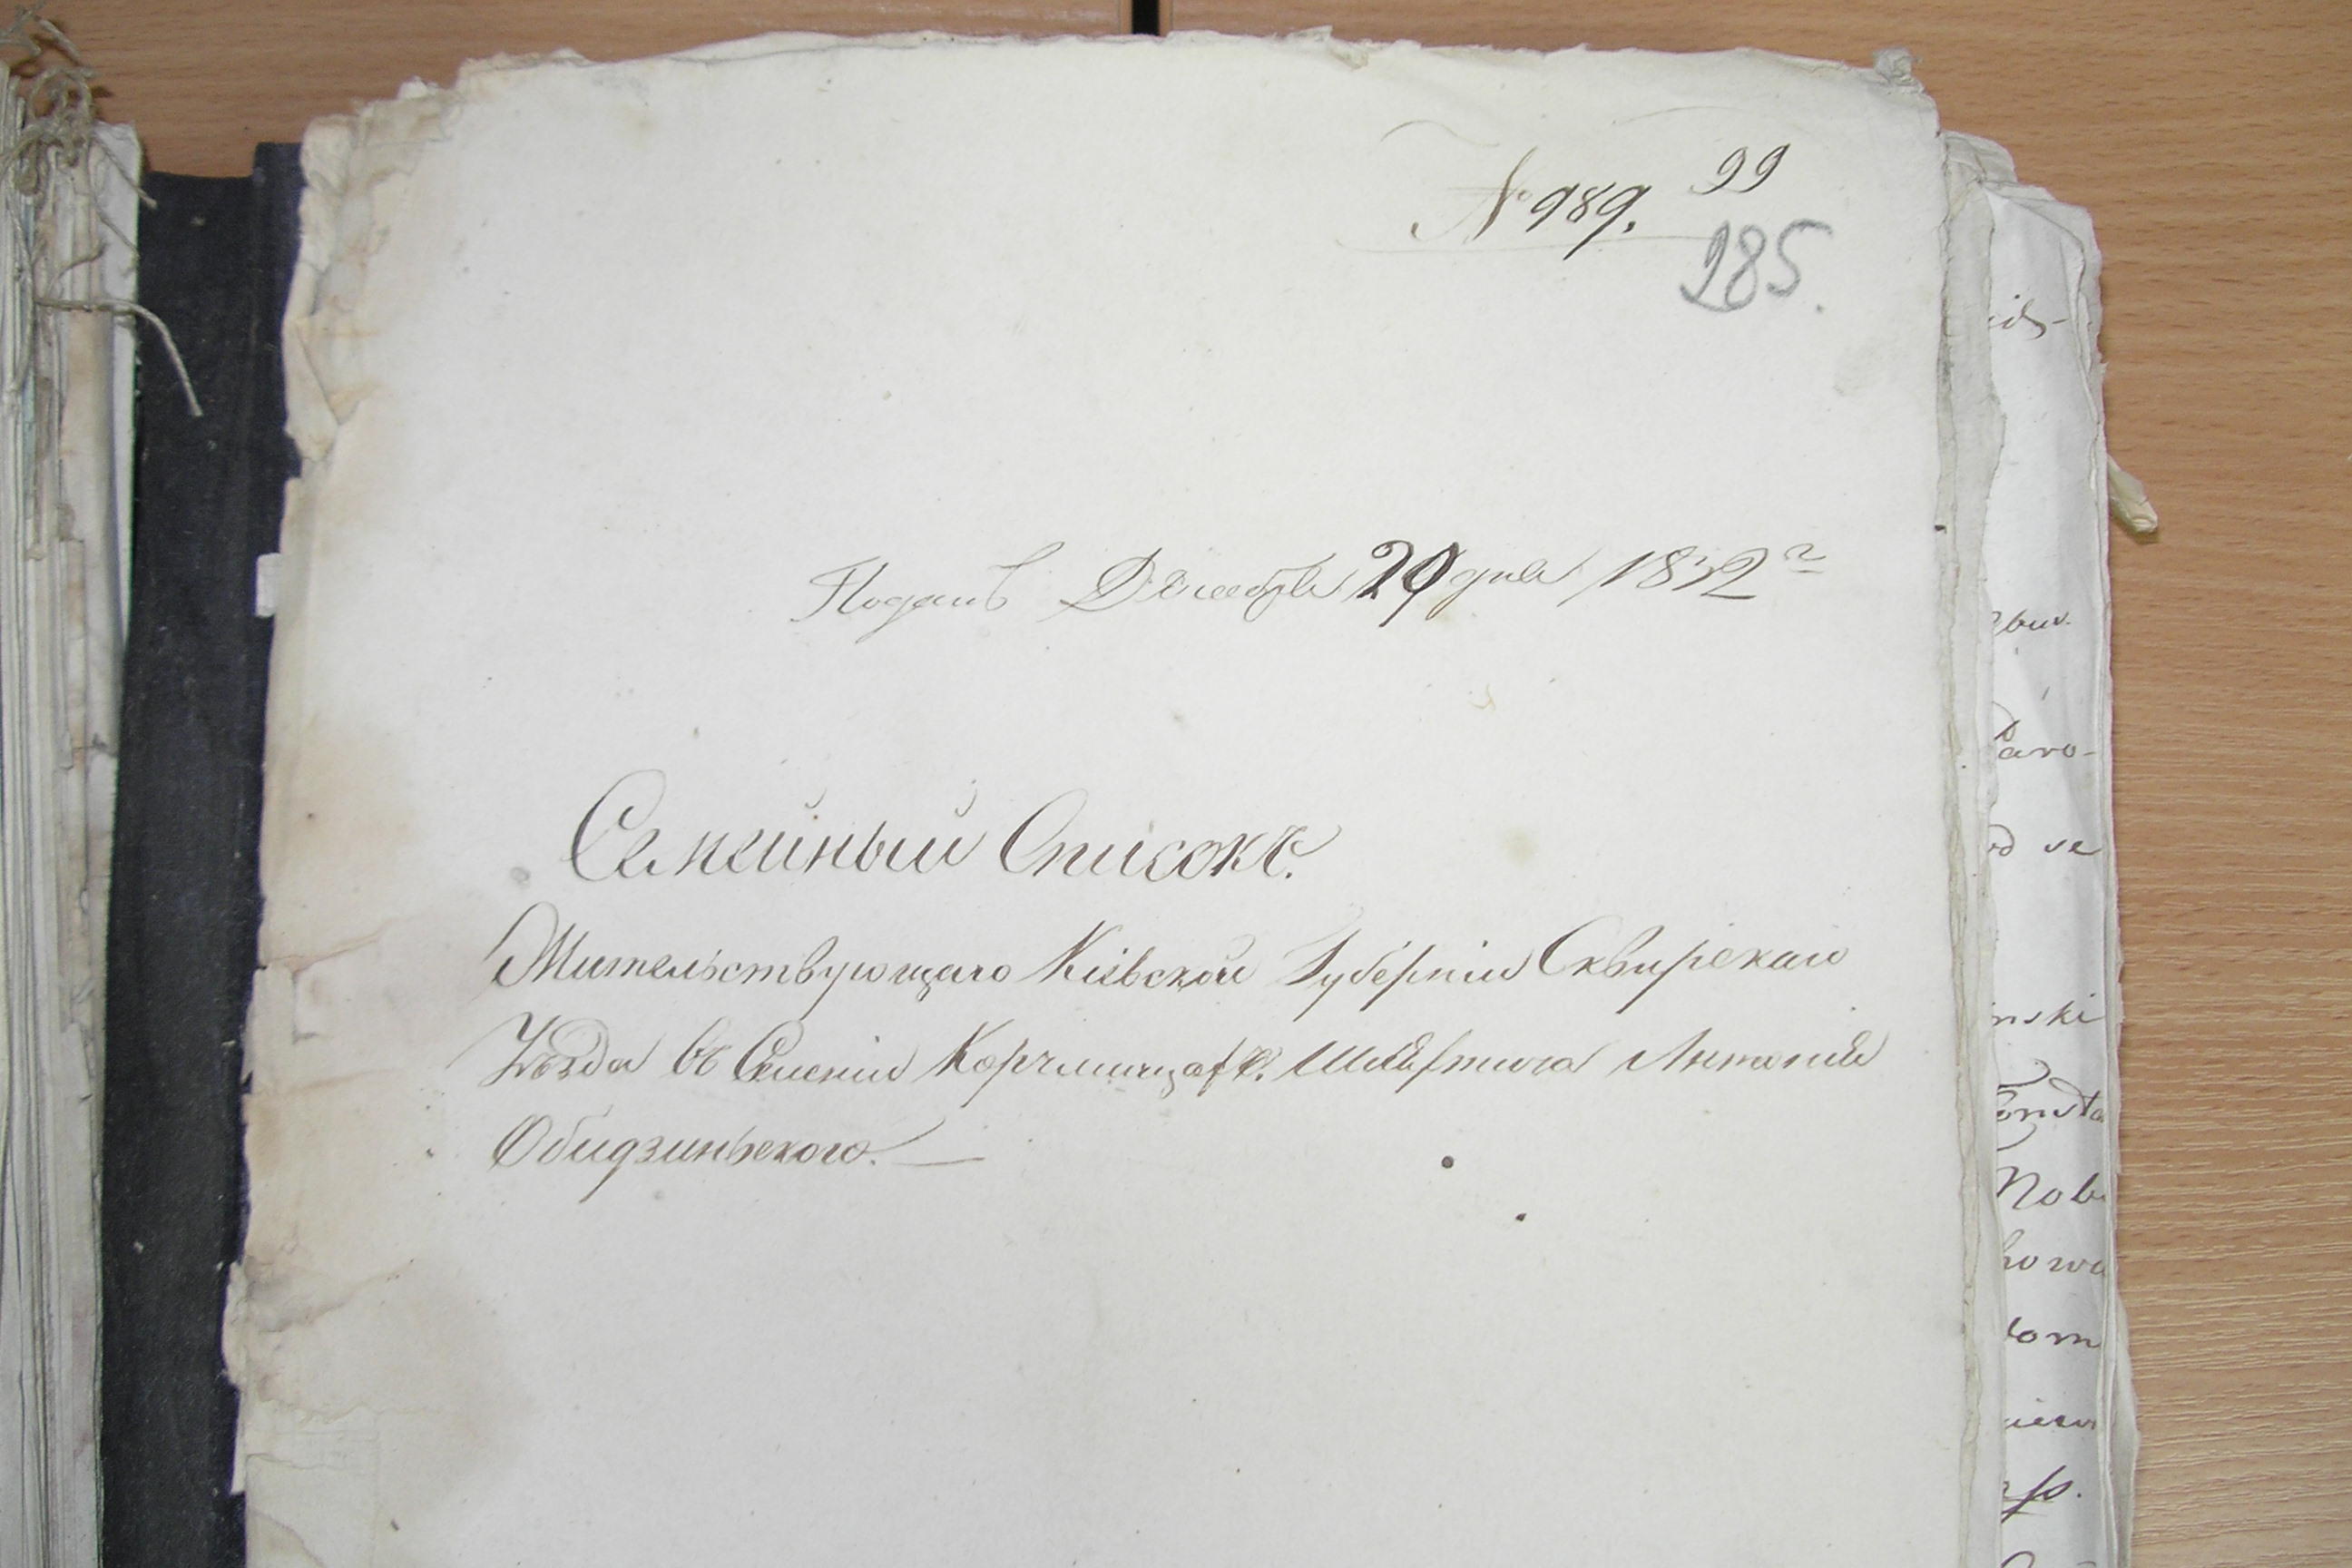 № 989. 99
285.
Поданъ Декабря 29 дня 1832 г
Семейный Списокъ.
Жительствующаго Кіевской Губерніи Сквирскаго
Уѣзда въ Селеніи Шляхтича Антонія
Обидзиньского. —
ids-
bus.
Paro-
se
nski
Consta
Nob
howa
dom